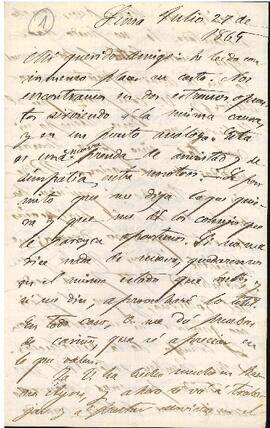 1
Lima Julio 27 de
1865
Mi querido amigo: he leido con
inmenso placer su carta. Nos
encontramos en dos estremos opues
tos sirviendo a la misma causa,
y en un punto analogo. Esta
es una nueva prenda de amistad y de
simpatia entre nosotros. Le per
mito que me diga cosas
y que me dé los consejos que
le parezca oportunos. Si no me
dice nada de nuevo, quedaremos
en el mismo estado que antes, y
si me dice, aprovecharé la
En todo caso, V. me dá pruebas
de cariño, que sé apreciar en
lo que valen.
Ya V. ha sido
y ahora se vá á